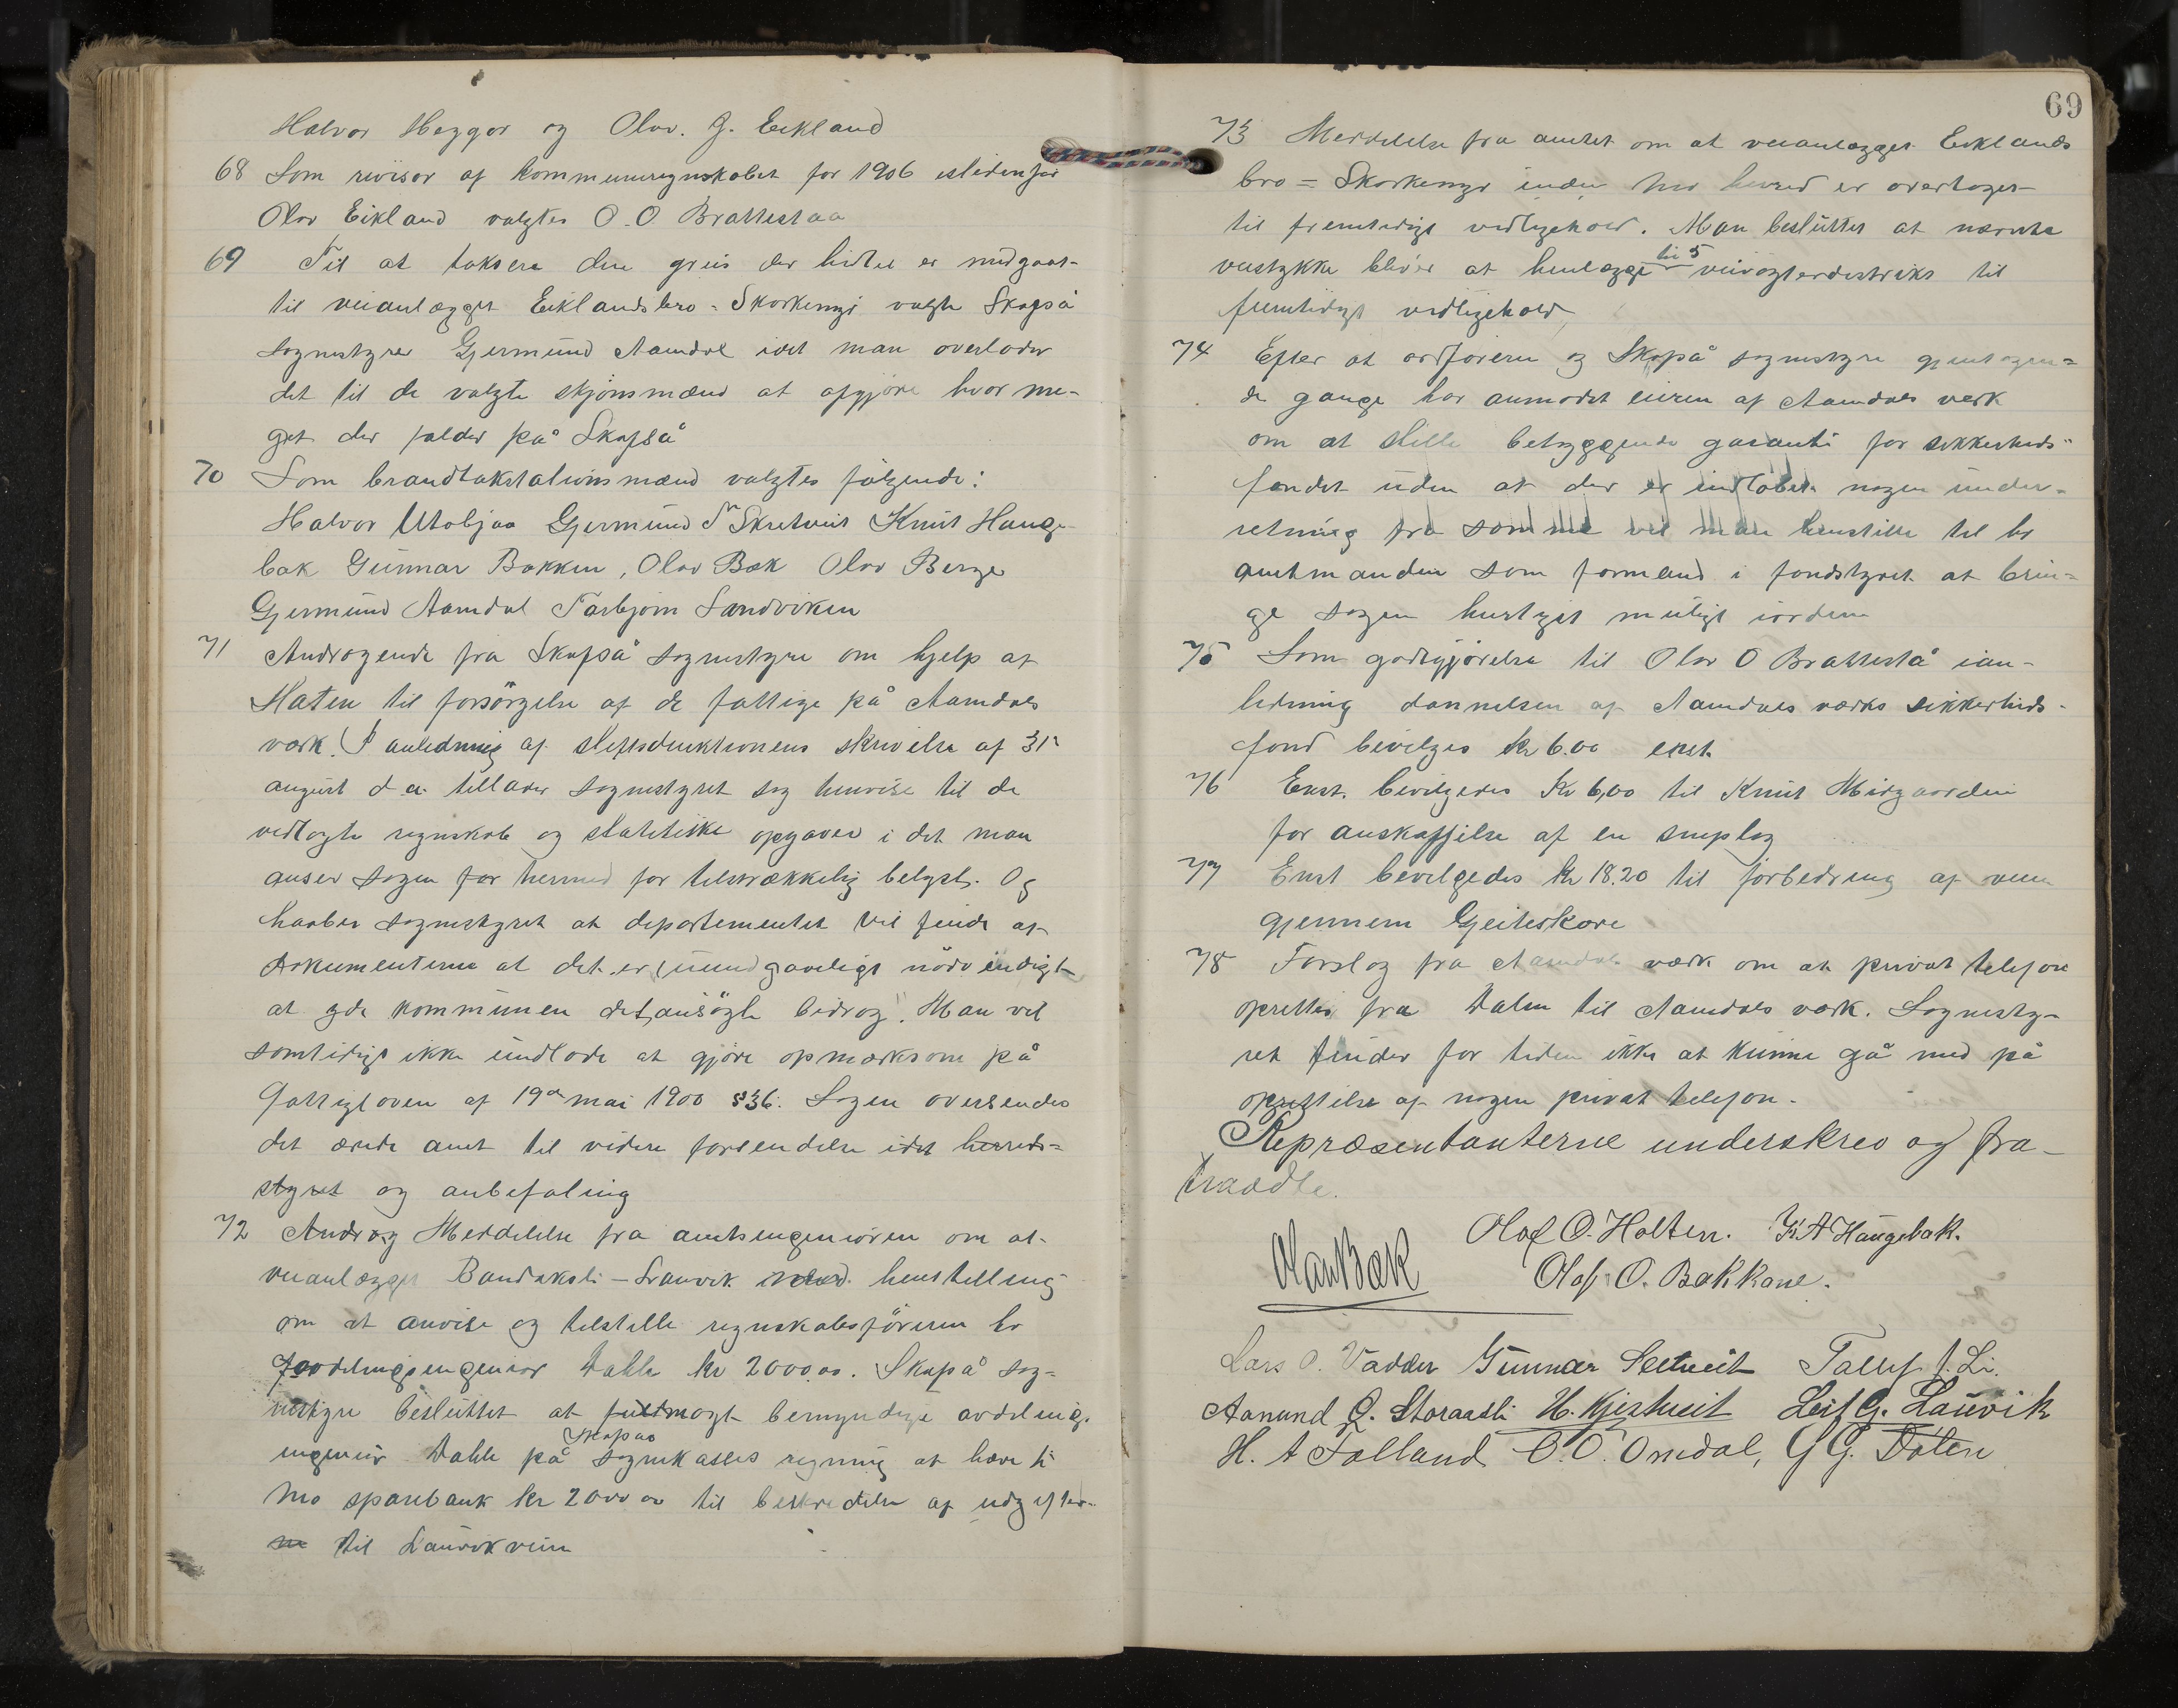 Halvor Heggor og Olav. G. Eikland
68 Som revisor af kommuneregnskabet for 1906 istedenfor
Olav Eikland valgtes O. O Brattestaa
69 Til at taksere den grus der hidtil er medgaat
til veianlægget Eiklandsbro - Skorkemyr valgte Skafså
sognestyre Germund Aamdal idet man overlader
det til de valgte skjønsmænd at afgjöre hvor me-
get der falder på Skafså
70 Som brandtakstationsmænd valgtes følgende:
Halvor Utabjaa Gjermund Sn Skretveit Knut Hauge
bak Gunnar Bakken, Olav Bæk Olav Berge
Gjermund Aamdal Tarbjørn Sandviken
71 Andragende fra Skafså sognestyre om hjelp af
Staten til forsörgelse af de fattige på Aamdals
værk. I anledning af skrivelse af 31te
august d a tillader sognestyret sig henvise til de
vedlagte regnskab og statetiske opgaver i det man
anser sagen for hermed for tilstrækkelig belyst. Og
haaber sognestyret at departementet vil finde af
dokumenterne at det er uundgaaeligt nödvendigt
at yde kommunen det ansögte bidrag. Man vil
samtidigt ikke undlade at gjöre opmærksom på
Fattigloven af 19de mai 1900 §36. Sagen oversendes
det ærede amt til videre forsendelse idet herreds=
styret og anbefaling
72 Andrag Meddelelse fra amtsingeniøren om at
veianlægget Bandaksli - Lauvik henstilling
om at anvise og tilstille regnskabsföreren hr
avdelingsingeniør Dahle kr 2000,00. Skafså sog=
nestyre besluttet at fuldmagt bemyndige avdeling.
Skafsaa
ingeniör Dahle på sognekasses regning at hæve i
Mo sparebank kr 2000 00 til bestridelse af udgifter-
ne til Lauvikveien
69
73 Meddelelse fra amtet om at veianlægget Eiklands
bro = Skorkemyr inden Mo herred er overtaget
til fremtidigt vedligehold. Man besluttet at nævnte
til 5
veistykke bliver at henlægge veivogterdistrikt til
fremtidigt vedligehold
74 Efter at ordføreren og Skafså sognestyre gjentagen=
de gange har anmodet eieren af Aamdals verk
om at stille betryggende garanti for sikkerheds"
fondet uden at der er indløbet nogen under-
retning fra samme vil man henstille til hr
amtmanden som formand i fondstyret at brin=
ge sagen hurtigst muligt iorden
75 Som godtgjörelse til Olav O Brattestå ian-
ledning dannelsen af Aamdals værks sikkerheds-
fond bevilges kr 6.00 enst.
76 Enst. bevilgedes Kr 6,00 til Knut Midgaarden
for anskaffelse af en sneplog
77 Enst bevilgedes kr 18.20 til forbedring af veien
gjennem Geiteskare
78 Forslag fra Aamdals værk om at privat telefon
oprettes fra Dalen til Aamdals værk. Sognesty-
ret finder for tiden ikke at kunne gå med på
oprettelse af nogen privat telefon.
Repræsentanterne underskrev og fra-
traadte.
Olav Bæk Olaf O. Holten. K. A Haugebak.
Olaf O. Bakkane.
Lars O. Vadder Gunnar Seltveit Talleif J. Li.
Aanund O. Storaasli H. Kjestveit Leif G. Lauvik
H. A Falland O. O. Omdal, G G. Dalen